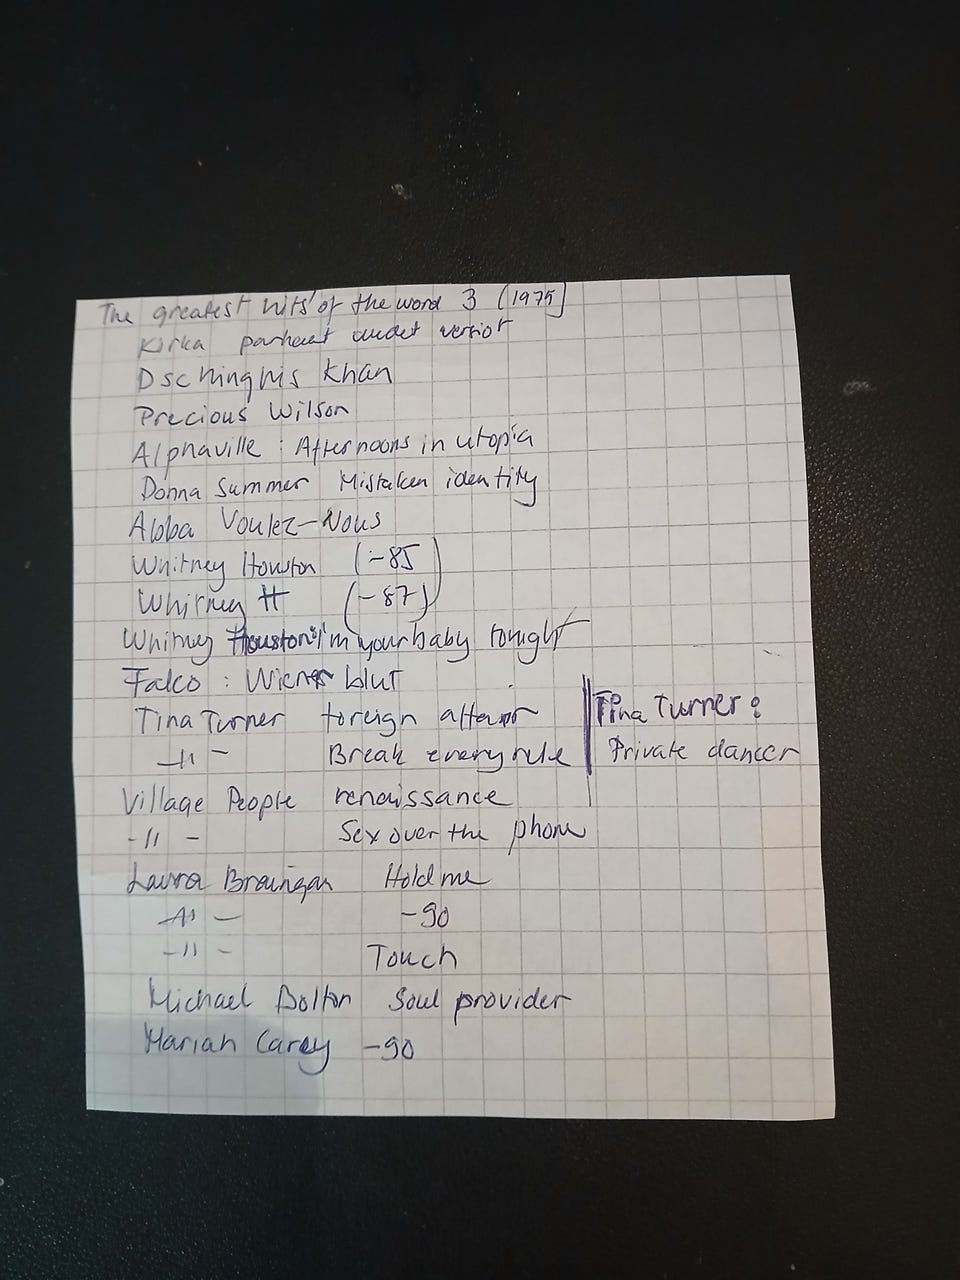 The greatest hits of the word 3 (1975)
Kirka parhaat uudet versiot
Dschinghis Khan
Precious Wilson
Alphaville : Afternoons in utopia
Donna Summer Mistaken identity
Abba Voulez-Vous
Whitney Houston (-85)
Whitney H (-87)
Whitney Houston: I'm your baby tonight
Falco : Wiener blut
Tina Turner foreign affair
-11- Break every rule
Tina Turner:
Private dancer
Village People renaissance
-11- Sex over the phone
Laura Braingan Hold me
-11- -90
-11- Touch
Michael Bolton Soul provider
Mariah Carey -90